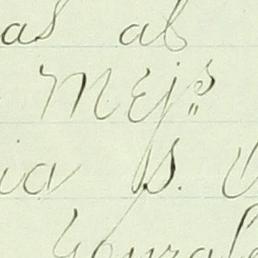 as al
Mejs
ia S.
Gonzale